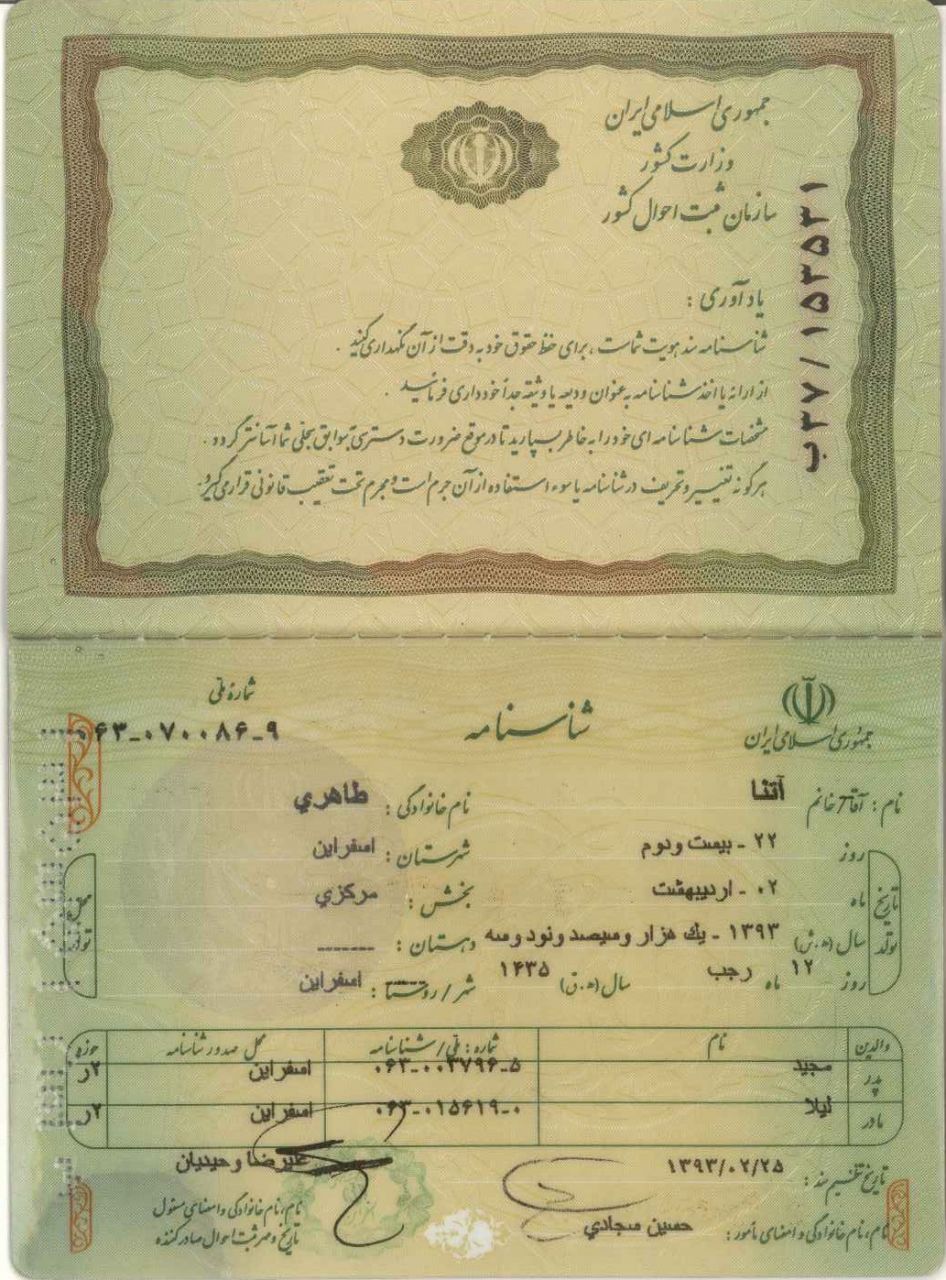 جمهوری اسلامی ایران
وزارت کشور
سازمان ثبت احوال کشور
ب۲۷/۱۵۳۵۳۱
یادآوری :
شناسنامه سند هویت شماست ، برای حفظ حقوق خود به دقت از آن نگهداری کنید .
از ارائه یا اخذ شناسنامه به عنوان ودیعه یا وثیقه جداً خودداری فرمائید .
مشخصات شناسنامه ای خود را به خاطر بسپارید تا در موقع ضرورت دسترسی بسوابق سجلی شما آسانتر گردد .
هرگونه تغییر و تحریف در شناسنامه یا سوء استفاده از آن جرم است و مجرم تحت تعقیب قانونی قرار می گیرد .
جمهوری اسلامی ایران
شناسنامه
شماره ملی
۰۶۳-۰۷۰۰۸۶-۹
نام : آقا/خانم آتنا
نام خانوادگی : طاهري
تاریخ تولد
روز ۲۲ - بیست و دوم
ماه ۰۲ - اردیبهشت
سال (ه.ش) ۱۳۹۳ - یك هزار و سیصد و نود و سه
روز ۱۲ ماه رجب سال (ه.ق) ۱۴۳۵
محل تولد
شهرستان : اسفراین
بخش : مرکزي
دهستان : -------
شهر / روستا : اسفراین
والدین نام شماره : ملی / شناسنامه محل صدور شناسنامه حوزه
پدر مجید ۰۶۳-۰۰۳۷۹۶-۵ اسفراین ۲ر
مادر لیلا ۰۶۳-۰۱۵۶۱۹-۰ اسفراین ۲ر
تاریخ تنظیم سند : ۱۳۹۳/۰۲/۲۵
نام ، نام خانوادگی و امضای مأمور : حسین سجادي
علیرضا وحیدیان
نام ، نام خانوادگی و امضای مسئول
تاریخ و مهر ثبت احوال صادر کننده